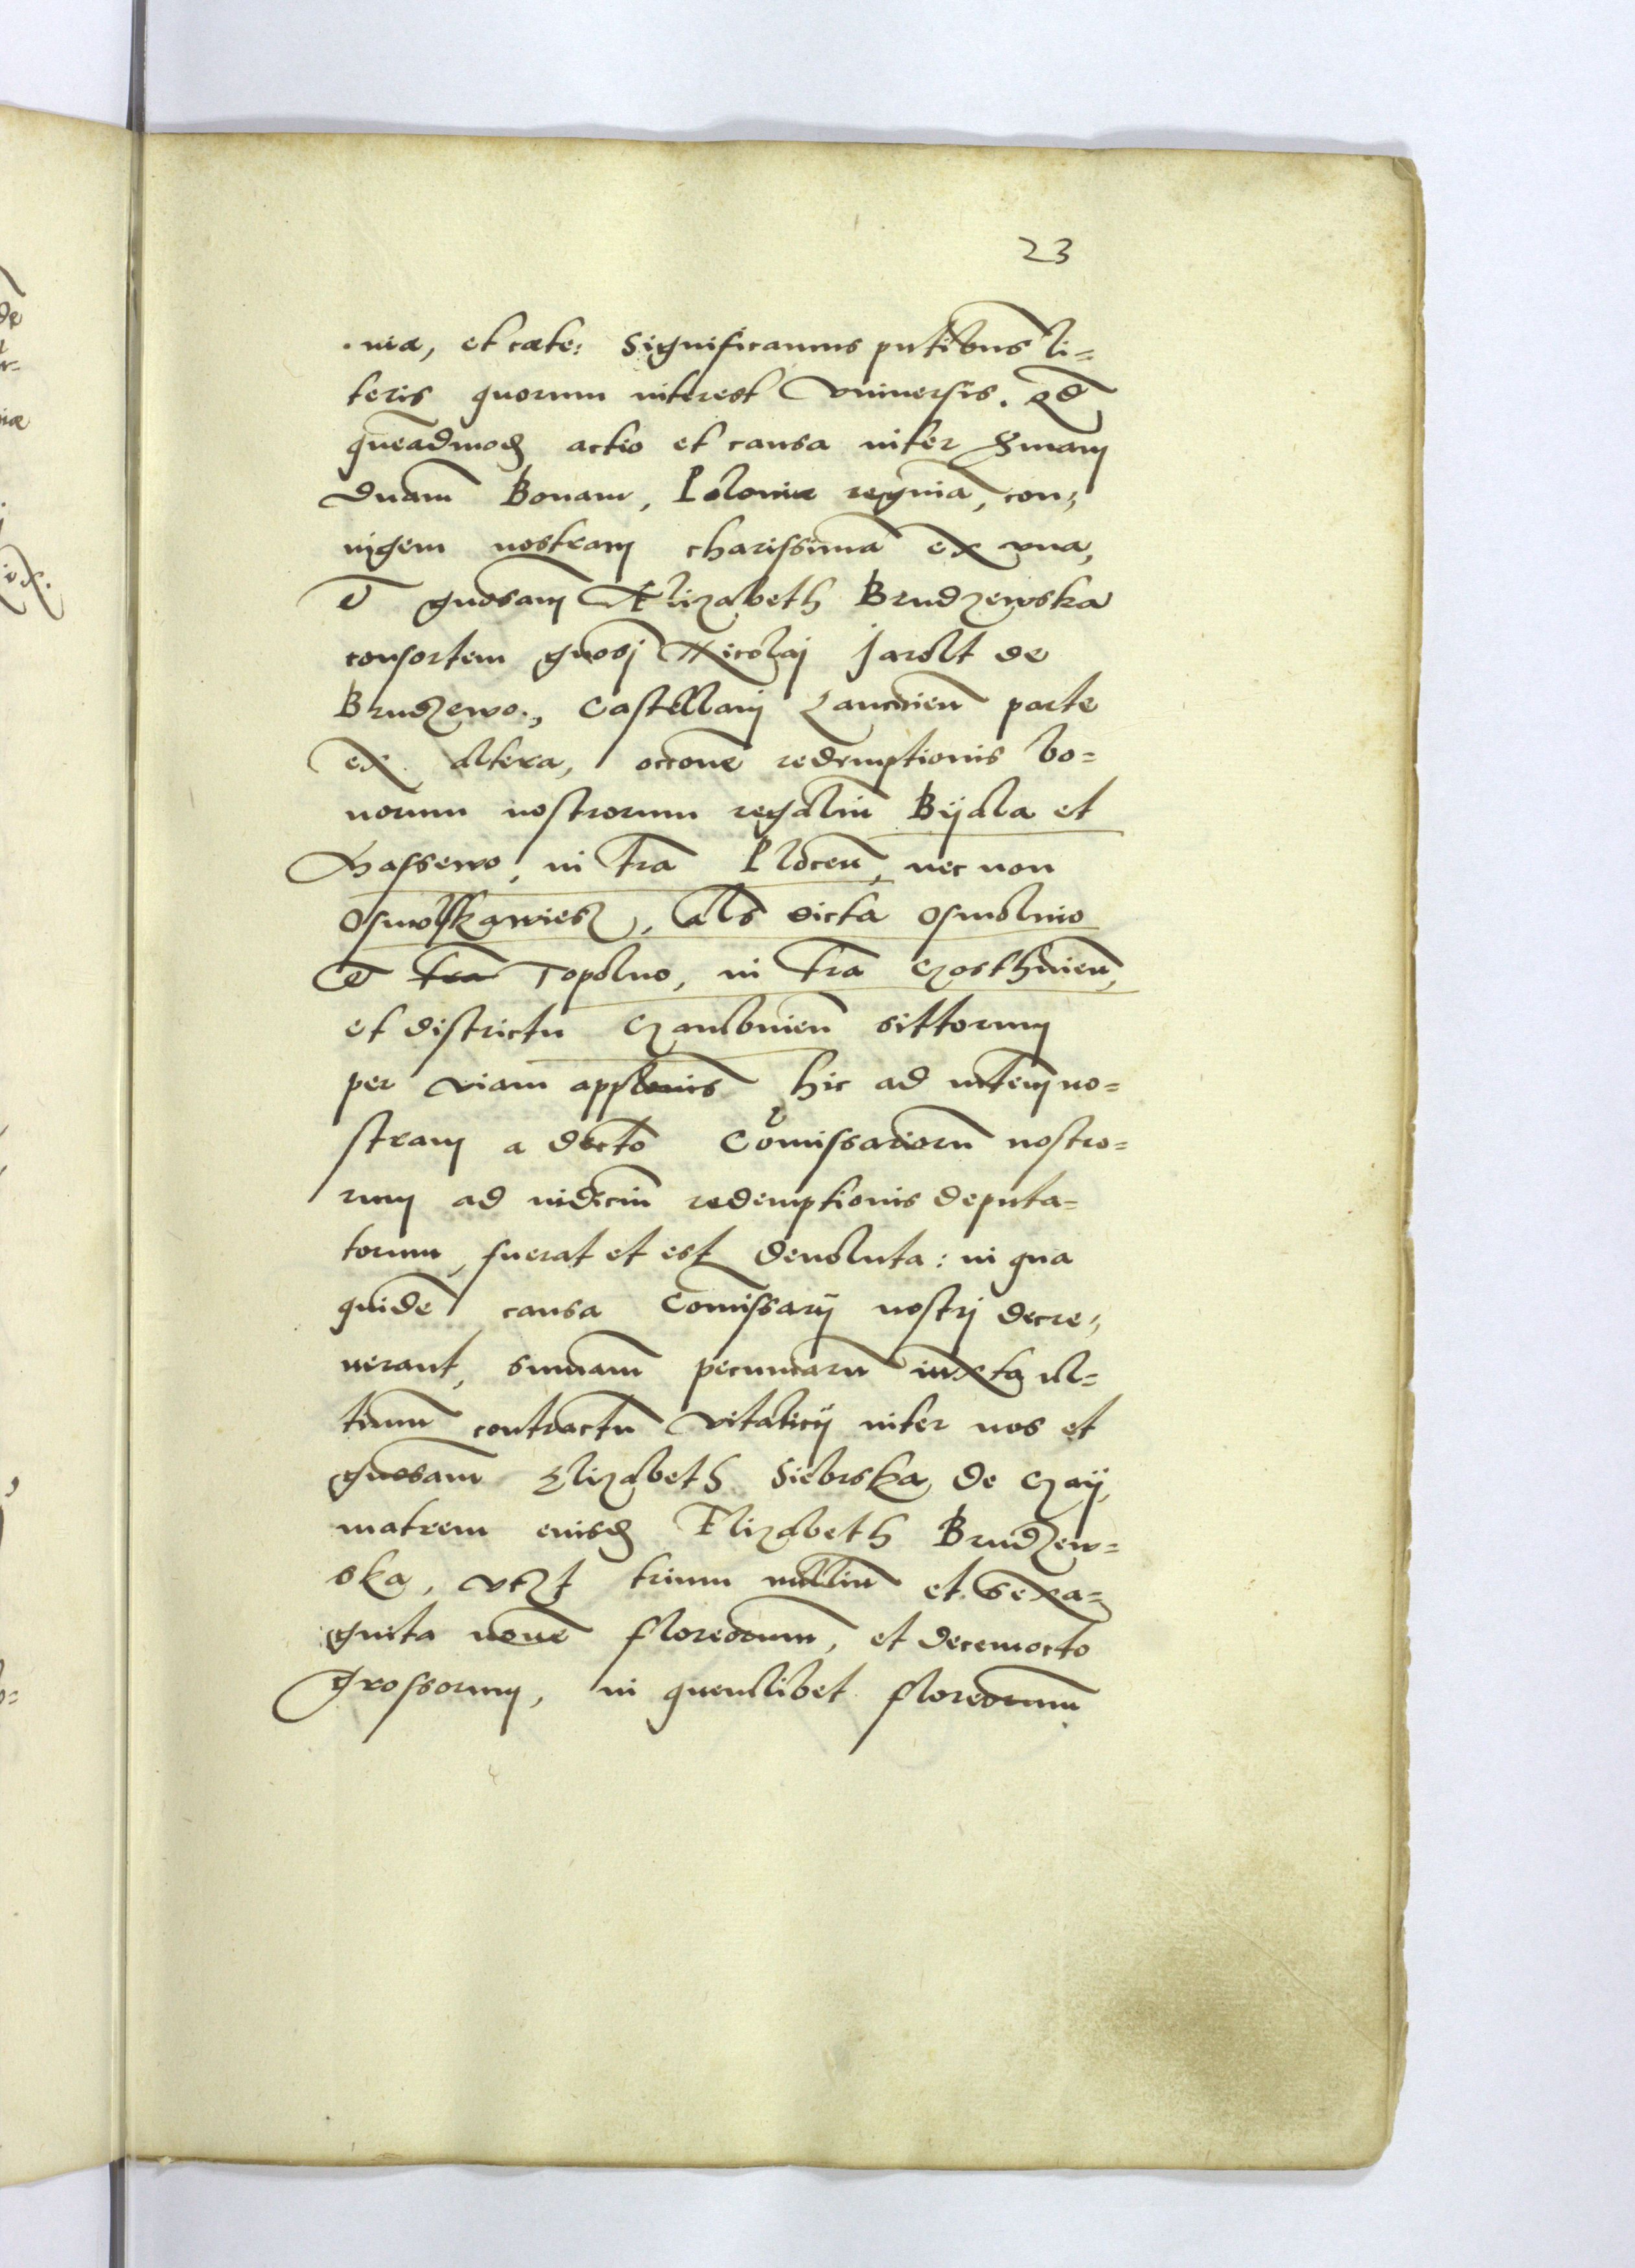 23
niæ, et cæte: Significamus pntibus li=
teris quorum interest vniversis. qd
queadmod actio et causa inter Smam
Dnam Bonam, Poloniæ reginā, con,
iugem nostram charissimā ex vna,
et gnosam Elizabeth Brudzewska
consortem gnosi Nicolai Jarolt de
Brudzewo, Castellani Lancicien parte
ex altera, occone redemptionis bo=
norum nostrorum regaliū Bijala et
Massewo, in tra Plocen, nec non
Osmolskawiesz, als dicta Osmolnio
et tra Topolno, in tra Gosthinien,
et districtu Gambinien sittorum
per viam applonis hic ad mtem no=
stram a decto Comissariorū nostro=
rum ad iudiciū redemptionis deputa=
torum, fuerat et est devoluta: in qua
quidē causa Comissarij nostri decre,
uerant, summam pecuniarū iuxta ul=
timū contractū vitalicij inter nos et
gnosam Elizabeth Siebrska de Czaij,
matrem eiusd Elizabeth Brudzew=
ska, vtzt trium milliū et sexa=
ginta nouē florenorum, et decemocto
grossorum, in quemlibet florenorum